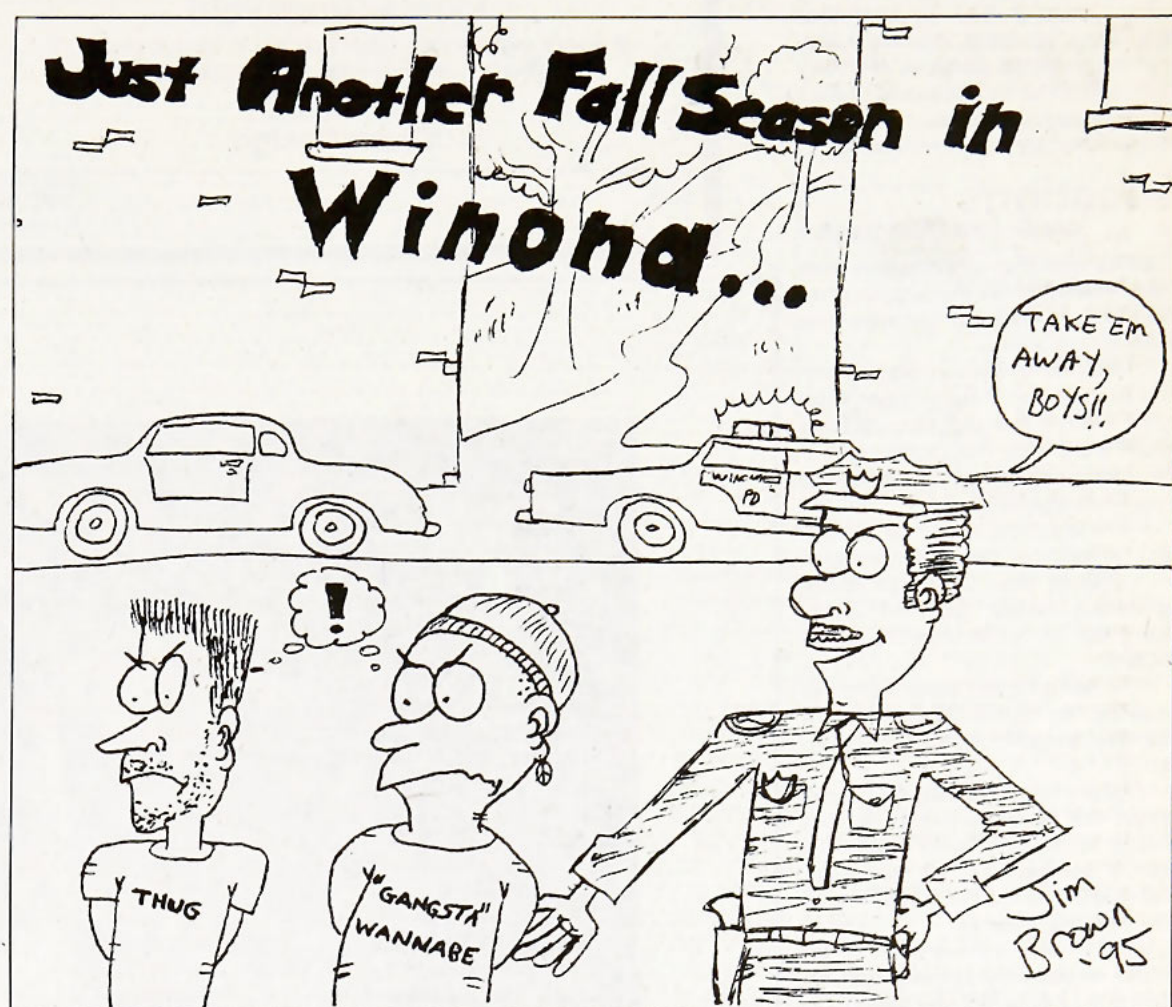 Just Another Fall Season in
Winona...
TAKE 'EM
AWAY,
BOYS!!
WINONA
PD
!
THUG
"GANGSTA"
WANNABE
Jim
Brown
'95